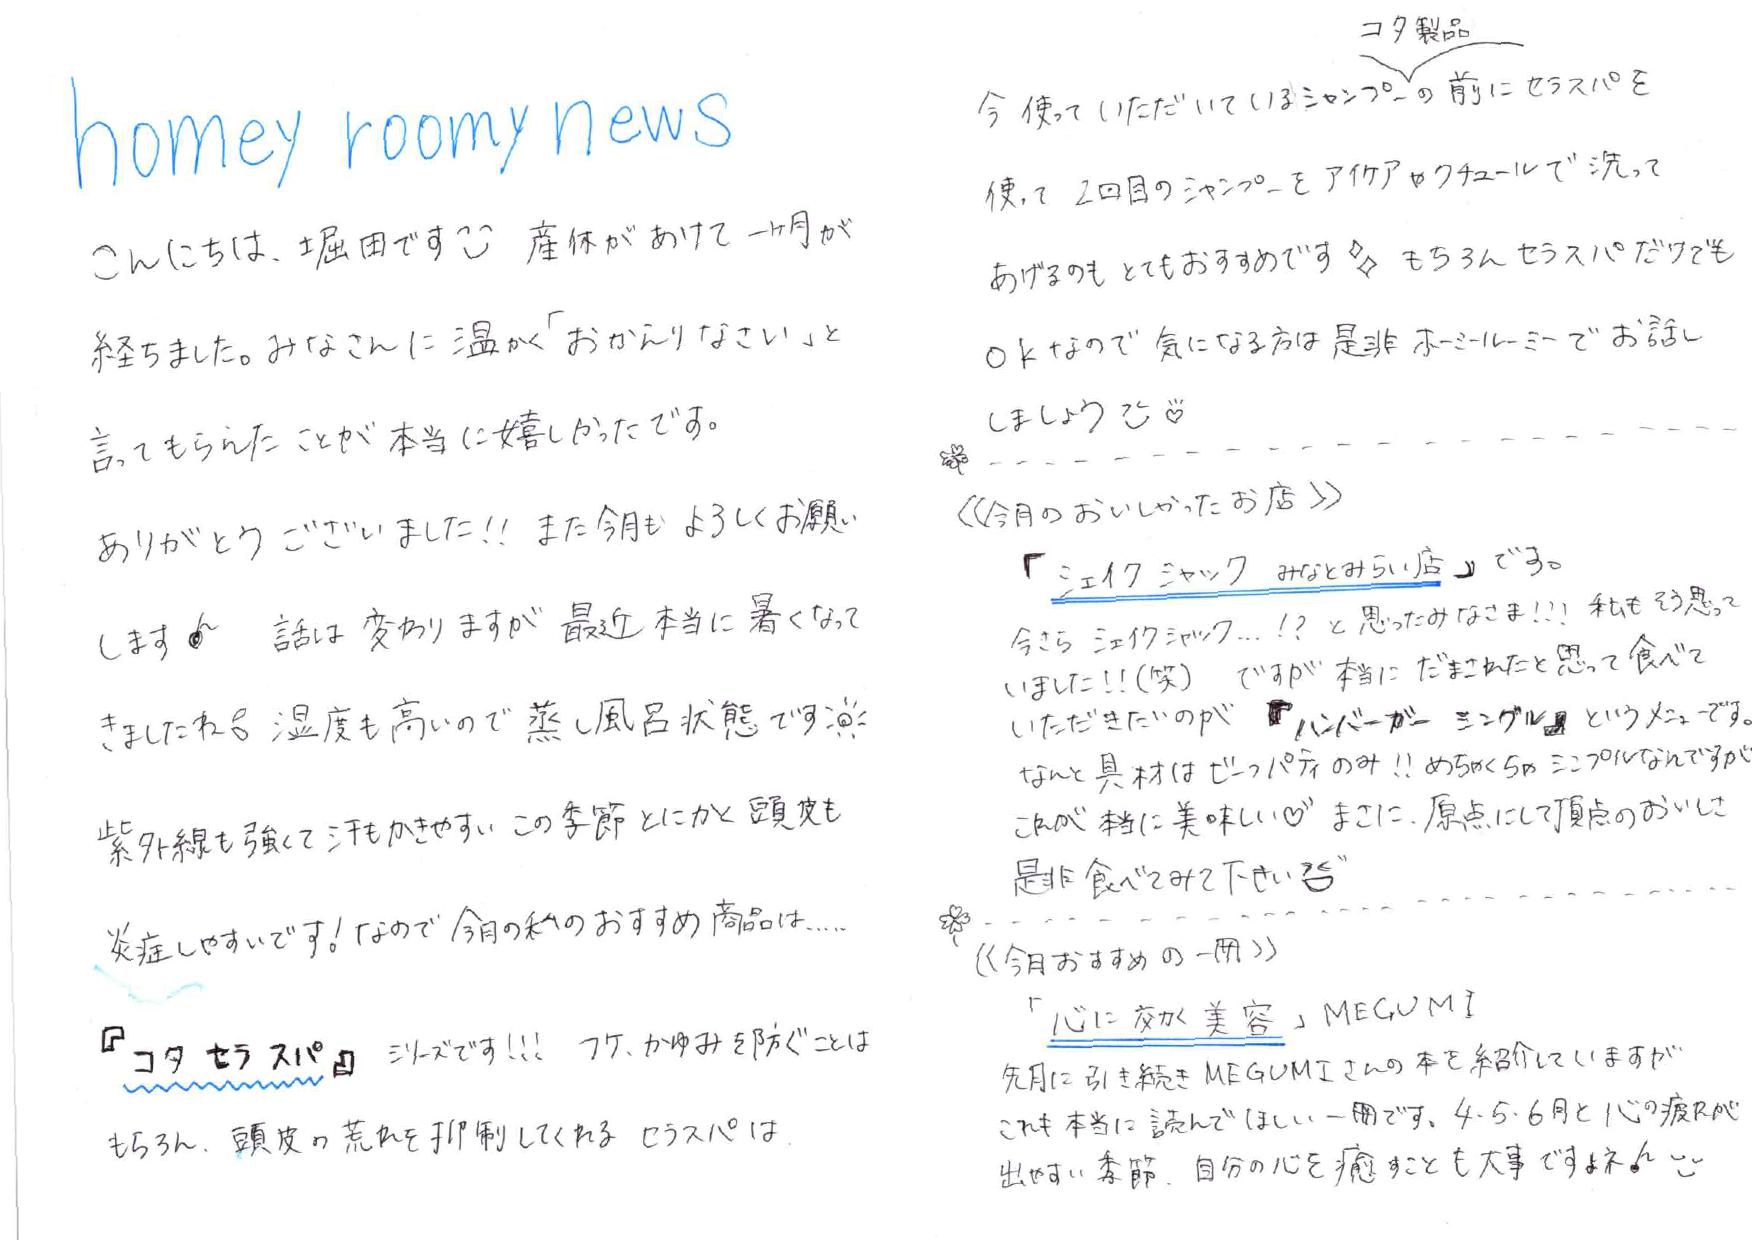 homey roomy news
こんにちは、堀田です 産休があけて一ヶ月が
経ちました。みなさんに温かく「おかえりなさい」と
言ってもらえたことが本当に嬉しかったです。
ありがとうございました!! また今月もよろしくお願い
します♪ 話は変わりますが最近本当に暑くなって
きましたね 湿度も高いので蒸し風呂状態です
紫外線も強くて汗もかきやすいこの季節とにかく頭皮も
炎症しやすいです!なので今月の私のおすすめ商品は.....
『コタ セラ スパ』シリーズです!!! フケ、かゆみを防ぐことは
もちろん、頭皮の荒れを抑制してくれるセラスパは、
コタ製品
今使っていただいているシャンプーの前にセラスパを
使って2回目のシャンプーをアイケアやクチュールで洗って
あげるのもとてもおすすめです もちろんセラスパだけでも
okなので気になる方は是非ホーミールーミーでお話し
しましょう
《今月のおいしかったお店》
『シェイクシャック みなとみらい店』です。
今さらシェイクシャック...!?と思ったみなさま!!!私もそう思って
いました!!(笑) ですが本当にだまされたと思って食べて
いただきたいのが『ハンバーガー シングル』というメニューです。
なんと具材はビーフパティのみ!!めちゃくちゃシンプルなんですが
これが本当に美味しい♡まさに、原点にして頂点のおいしさ
是非食べてみて下さい
《今月おすすめの一冊》
「心に効く美容」MEGUMI
先月に引き続きMEGUMIさんの本を紹介していますが
これも本当に読んでほしい一冊です。4・5・6月と心の疲れが
出やすい季節、自分の心を癒すことも大事ですよネ♪